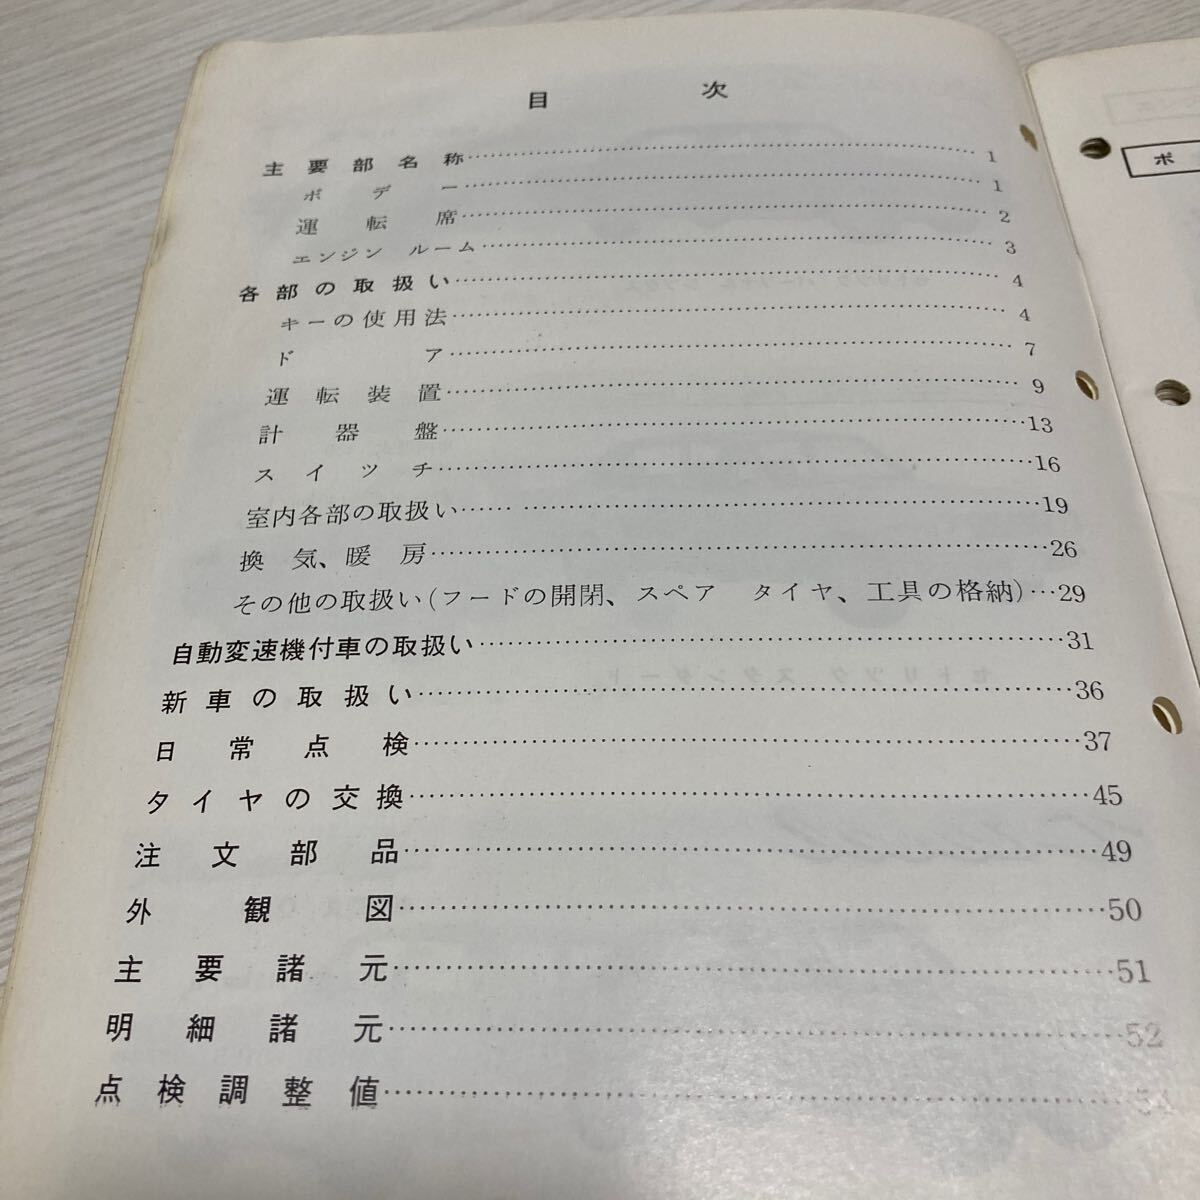 目次
主要部名称……1
ボデー……1
運転席……2
エンジン ルーム……3
各部の取扱い……4
キーの使用法……4
ドア……7
運転装置……9
計器盤……13
スイツチ……16
室内各部の取扱い……19
換気、暖房……26
その他の取扱い(フードの開閉、スペア タイヤ、工具の格納)…29
自動変速機付車の取扱い……31
新車の取扱い……36
日常点検……37
タイヤの交換……45
注文部品……49
外観図……50
主要諸元……51
明細諸元……52
点検調整値……54
ボ